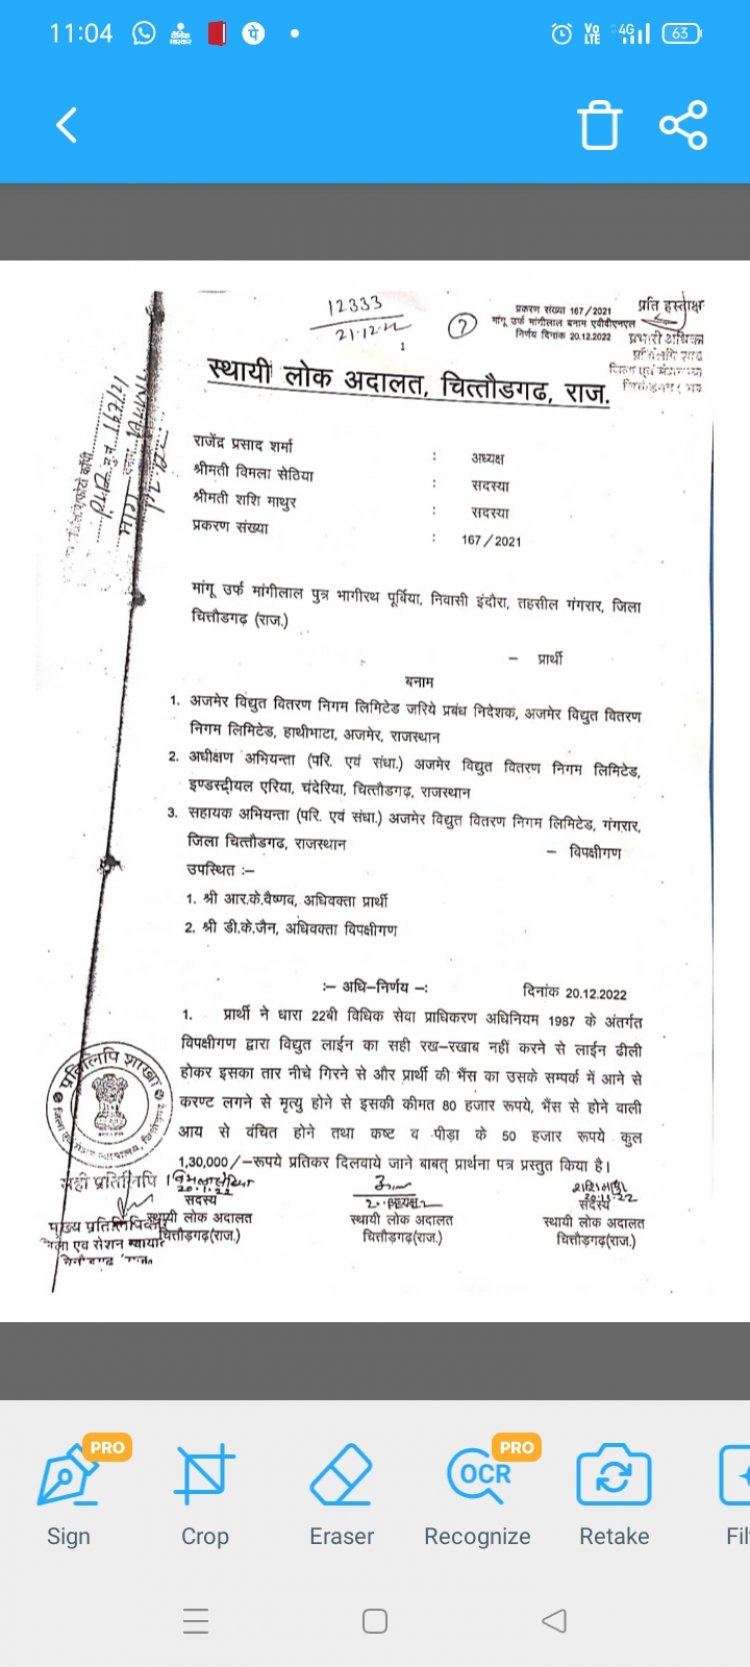 11:04
Vo LTE 4G 63
12333
21.12.22
प्रकरण संख्या 167/2021
मांगू उर्फ मांगीलाल बनाम एवीवीएनएल
निर्णय दिनांक 20.12.2022
प्रति हस्ताक्षर
1
स्थायी लोक अदालत, चित्तौडगढ, राज.
राजेंद्र प्रसाद शर्मा : अध्यक्ष
श्रीमती विमला सेठिया : सदस्या
श्रीमती शशि माथुर : सदस्या
प्रकरण संख्या : 167/2021
मांगू उर्फ मांगीलाल पुत्र भागीरथ पूर्विया, निवासी इंदौरा, तहसील गंगरार, जिला
चित्तौडगढ़ (राज.)
– प्रार्थी
बनाम
1. अजमेर विद्युत वितरण निगम लिमिटेड जरिये प्रबंध निदेशक, अजमेर विद्युत वितरण
निगम लिमिटेड, हाथीभाटा, अजमेर, राजस्थान
2. अधीक्षण अभियन्ता (परि. एवं संधा.) अजमेर विद्युत वितरण निगम लिमिटेड,
इण्डस्ट्रीयल एरिया, चंदेरिया, चित्तौडगढ़, राजस्थान
3. सहायक अभियन्ता (परि. एवं संधा.) अजमेर विद्युत वितरण निगम लिमिटेड, गंगरार,
जिला चित्तौडगढ, राजस्थान
– विपक्षीगण
उपस्थित :–
1. श्री आर.के.वैष्णव, अधिवक्ता प्रार्थी
2. श्री डी.के.जैन, अधिवक्ता विपक्षीगण
:– अधि–निर्णय –: दिनांक 20.12.2022
1. प्रार्थी ने धारा 22बी विधिक सेवा प्राधिकरण अधिनियम 1987 के अंतर्गत
विपक्षीगण द्वारा विद्युत लाईन का सही रख–रखाब नहीं करने से लाईन ढीली
होकर इसका तार नीचे गिरने से और प्रार्थी की भैंस का उसके सम्पर्क में आने से
करण्ट लगने से मृत्यु होने से इसकी कीमत 80 हजार रूपये, भैंस से होने वाली
आय से वंचित होने तथा कष्ट व पीड़ा के 50 हजार रूपये कुल
1,30,000/–रूपये प्रतिकर दिलवाये जाने बाबत् प्रार्थना पत्र प्रस्तुत किया है।
प्रतिलिपि शाखा
सही प्रतिलिपि
सदस्य
स्थायी लोक अदालत
चित्तौड़गढ़(राज.)
अध्यक्ष
स्थायी लोक अदालत
चित्तौड़गढ़(राज.)
सदस्य
स्थायी लोक अदालत
चित्तौड़गढ़(राज.)
PRO PRO
OCR
Sign Crop Eraser Recognize Retake Fil